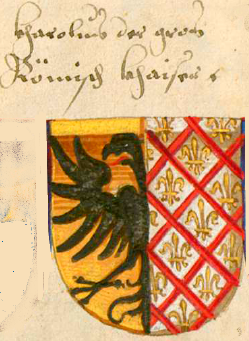 kharolus der gros
Römisch khaiser